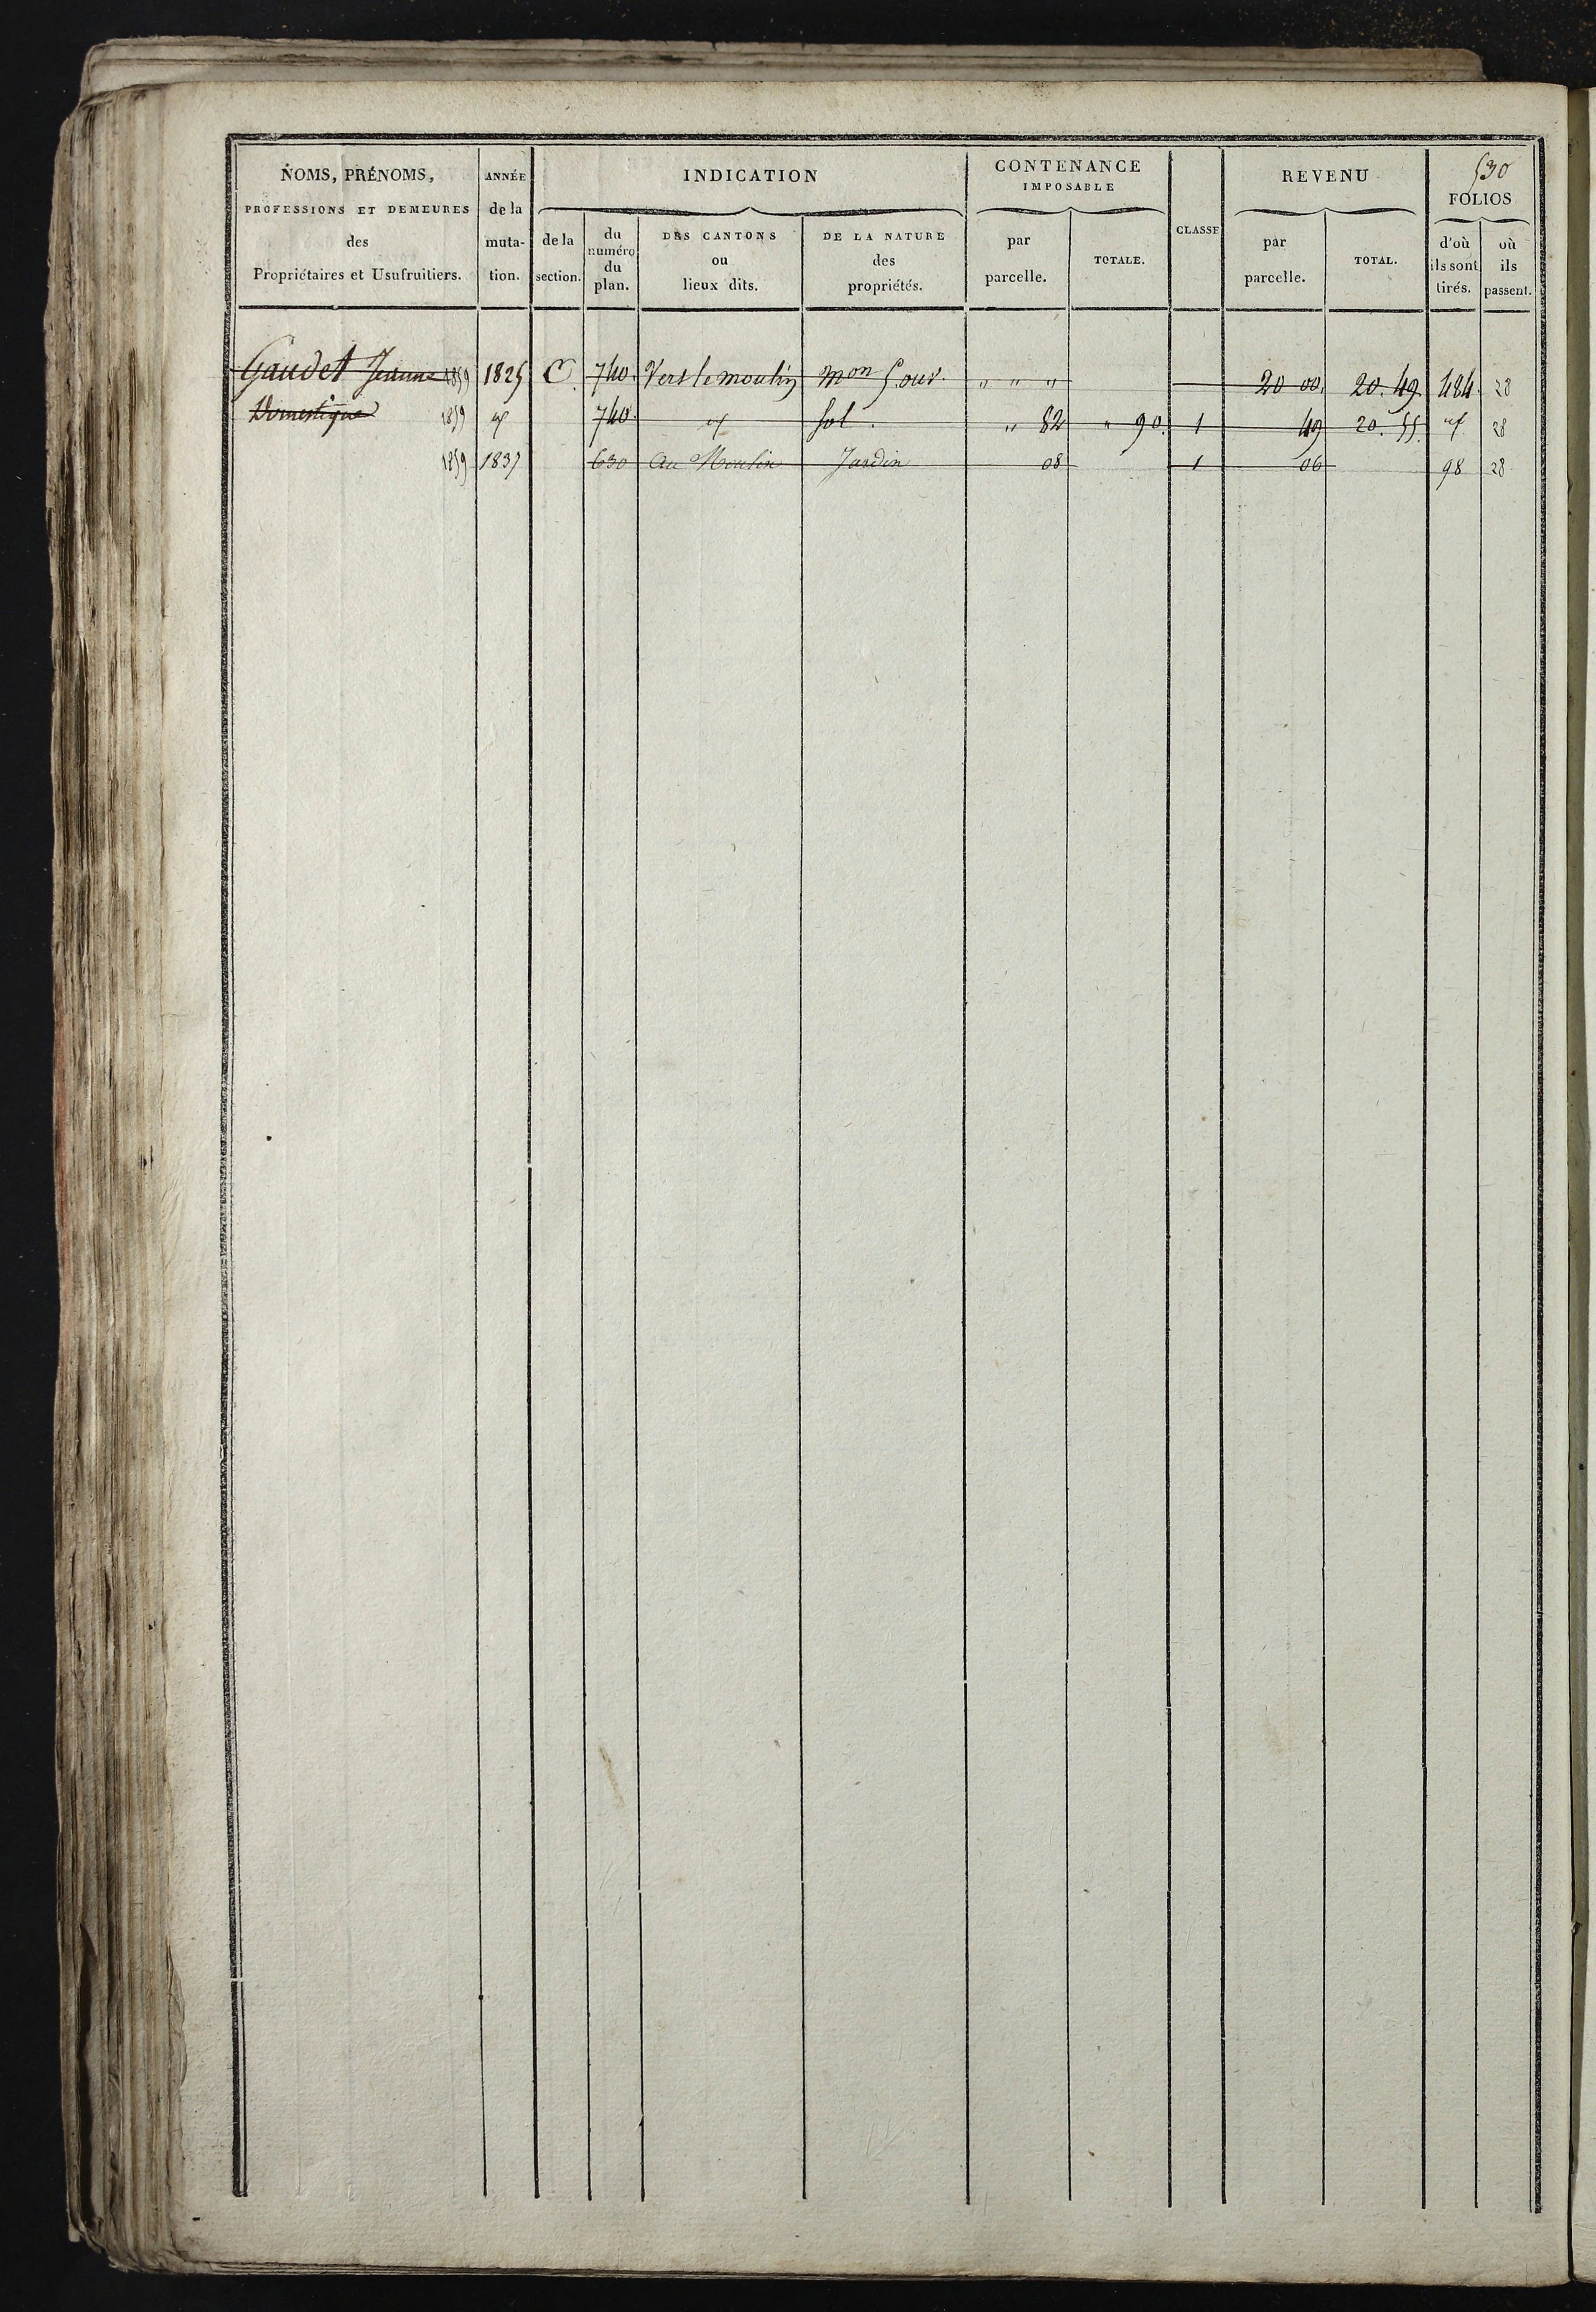 530
NOMS, PRÉNOMS,
PROFESSIONS ET DEMEURES
des
Propriétaires et Usufruitiers.
ANNÉE
de la
muta-
tion.
INDICATION
de la
section.
du
numéro
du
plan.
DES CANTONS
ou
lieux dits.
DE LA NATURE
des
propriétés.
CONTENANCE
IMPOSABLE
par
parcelle.
TOTALE.
CLASSE
REVENU
par
parcelle.
TOTAL.
FOLIOS
d'où
ils sont
tirés.
où
ils
passent.
Gaudet Jeanne 1859 1825 C. 740. Vers le moulin mon 5. ouv. " " " 20 00. 20. 49. 484. 28
Domestique 1859 " 740. " sol. " 82 " 90. 1 49 20. 55. " 28
1859 1837 630 Au Moulin Jardin 08 1 06 98 28